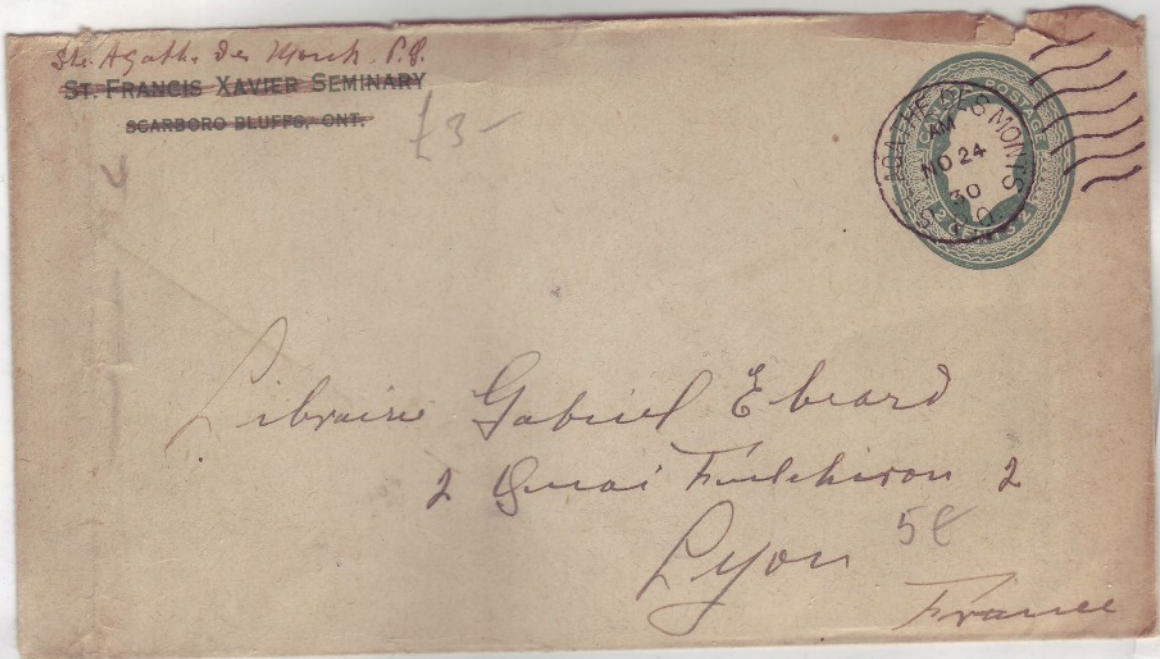 Ste. Agathe Des Monts. P.Q.
ST. FRANCIS XAVIER SEMINARY
SCARBORO BLUFFS, ONT.
£3-
CANADA POSTAGE
2 CENTS 2
STE AGATHE DES MONTS
AM
NO 24
30
P.Q.
Librairie Gabriel Ebrard
2 Quai Fulchiron 2
Lyon
5¢
France